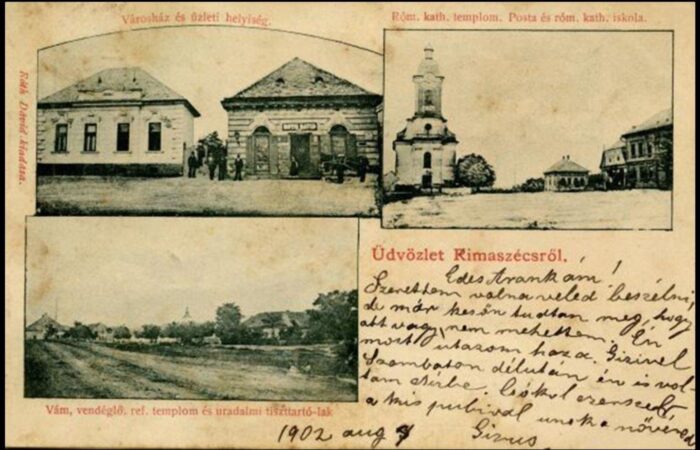 Városház és üzleti helyiség.
Róm. kath. templom. Posta és róm. kath. iskola.
Ráth Dávid kiadása.
Üdvözlet Rimaszécsről.
Edes Arankám!
Szerettem volna veled beszélni,
de már későn tudtam meg, hogy
ott vagy, nem mehettem. Én
most utazom haza. Gizivel
Szombaton délután én is vol-
tam
a kis pubival unoka nővéred
Gizus
Vám, vendéglő, ref. templom és uradalmi tiszttartó-lak
1902 aug